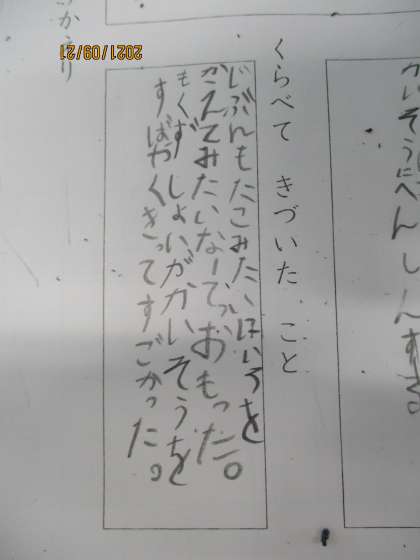 かいそうにへんしんする。
くらべて きづいた こと
じぶんもたこみたいはいろを
かえてみたいなーでっておもった。
もくずしょいがかいそうを
すばやくきってすごかった。
2021/09/21